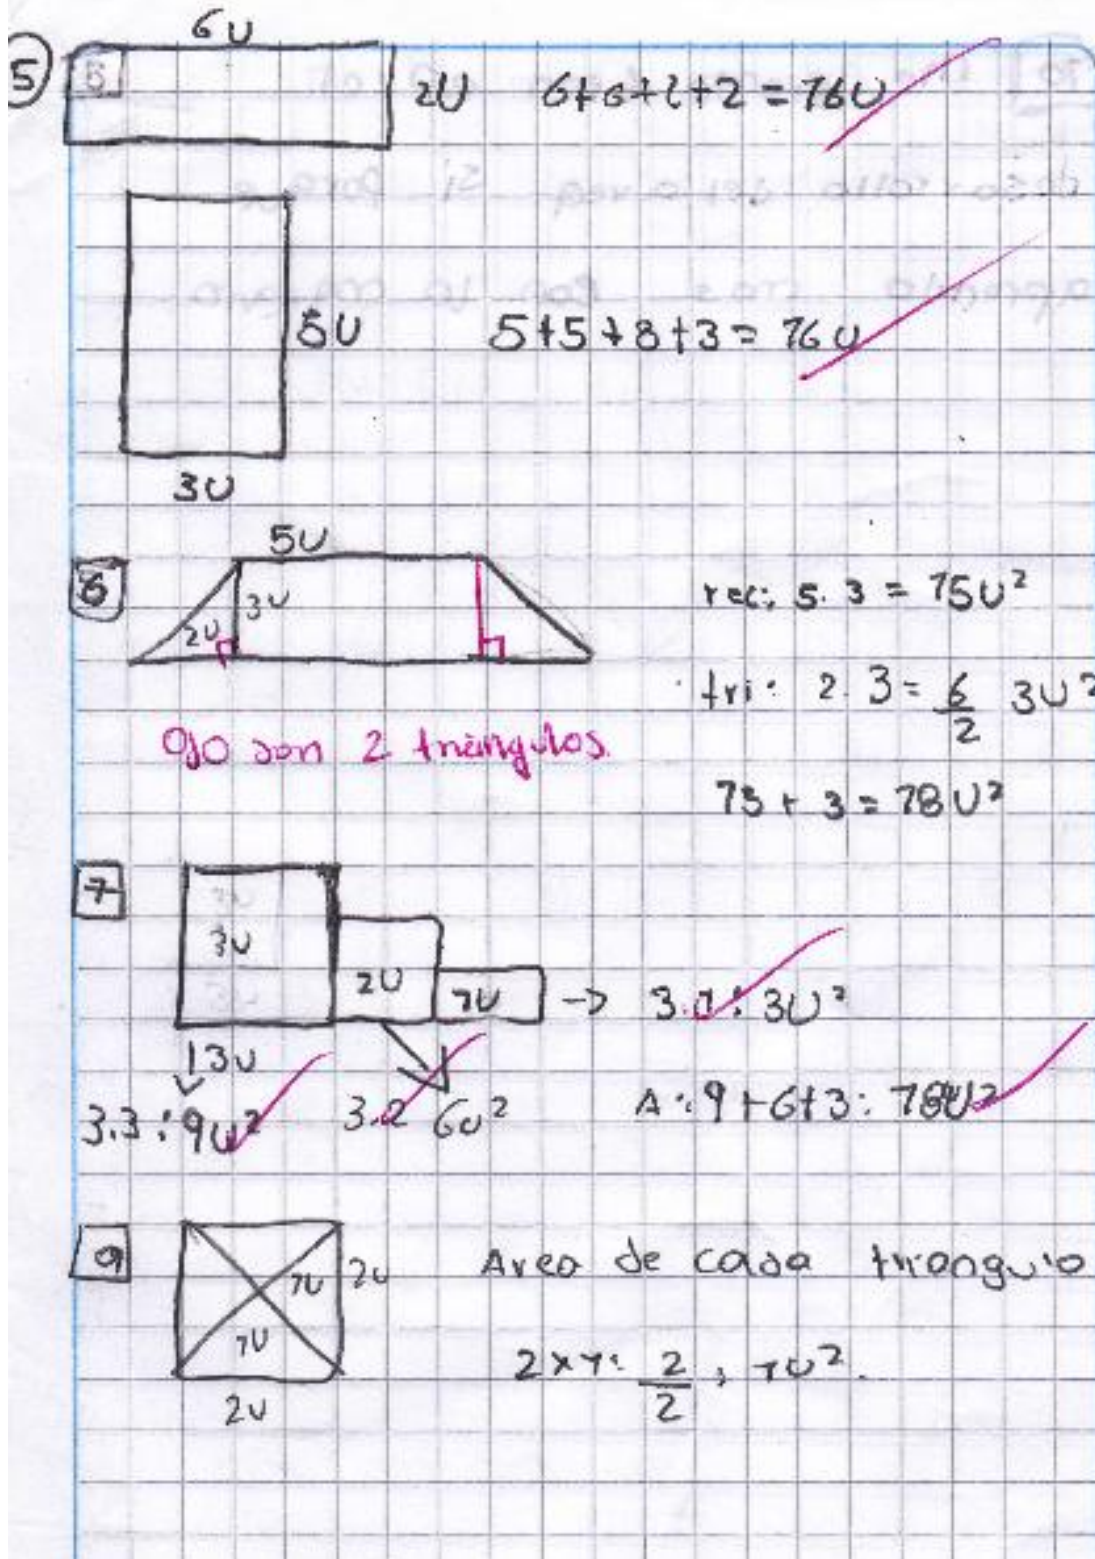 5
6U
5
2U 6+6+2+2=16U
5U 5+5+8+3=16U
3U
6
5U
3U
2U
rec: 5.3=15U²
tri: 2.3=6/2 3U²
Ojo son 2 triángulos.
15+3=18U²
7
3U
2U
1U -> 3.1: 3U²
3U
3.3: 9U²
3.2 6U²
A: 9+6+3: 18U²
9
1U
2U
Area de cada triangulo
1U
2x1: 2/2 : 1U².
2U